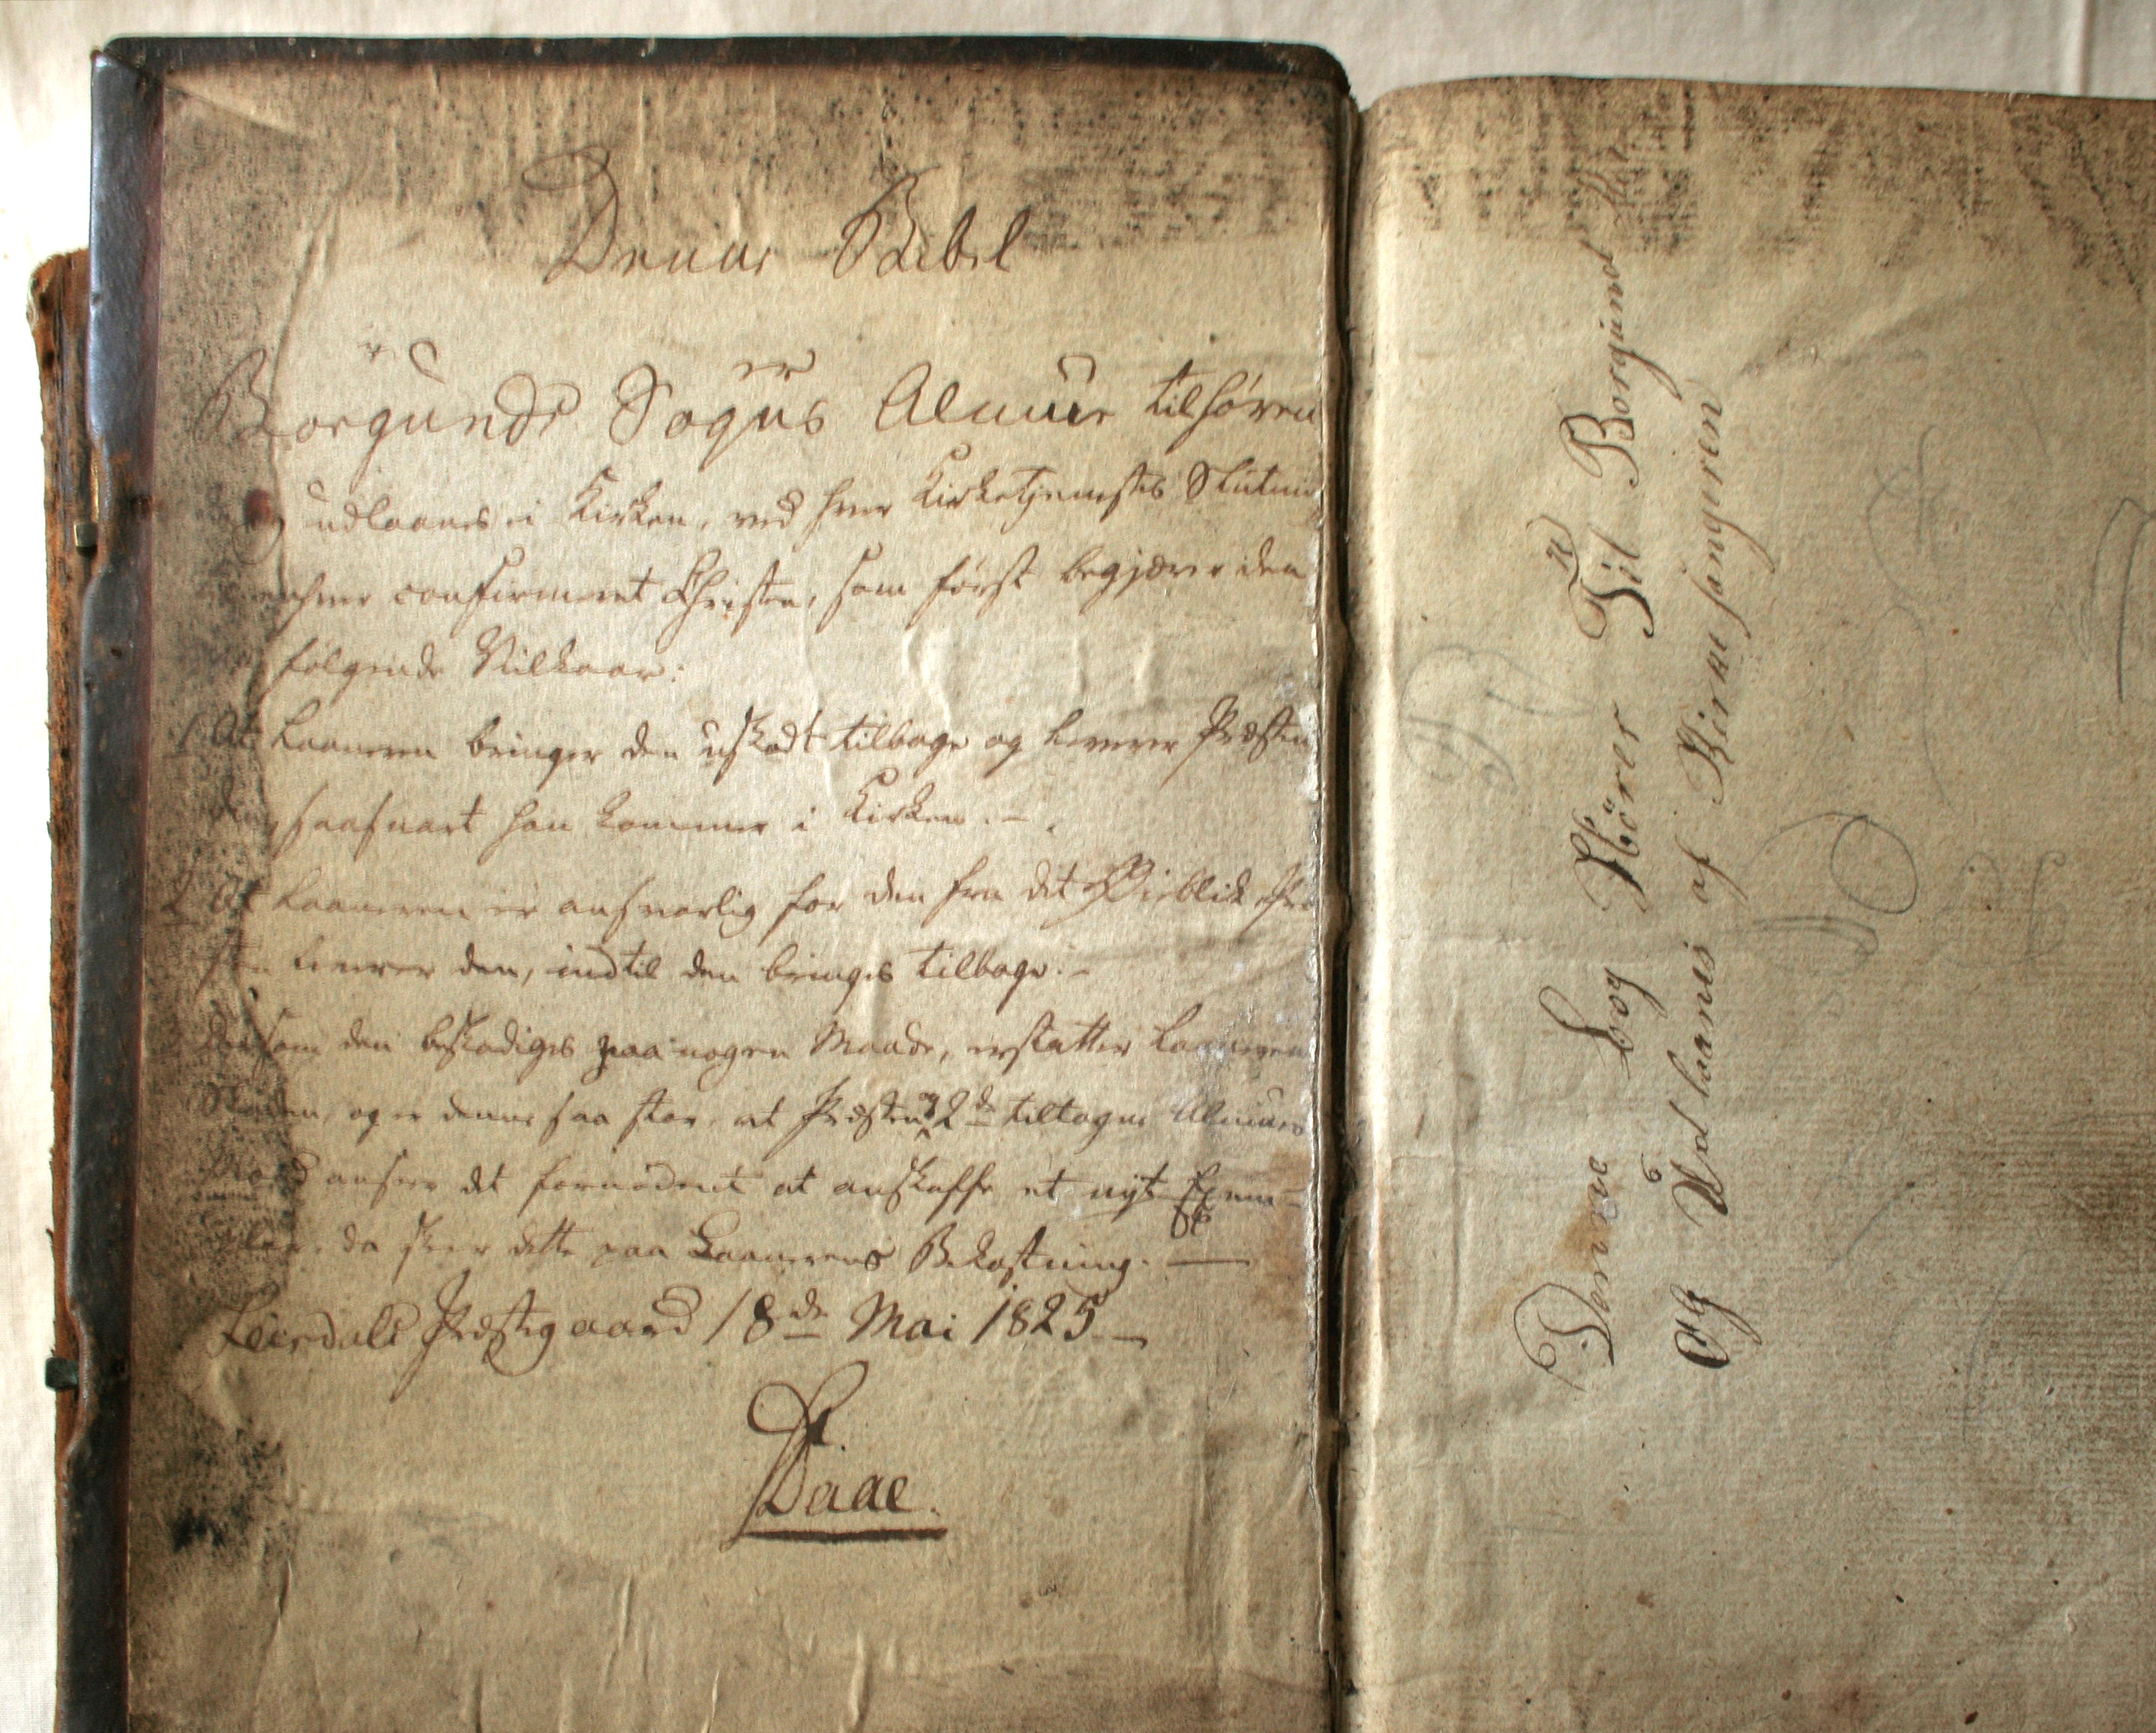 Denne Bibel
er
Borgunds Sogns Almue tilhøren
og udlaanes i Kirken, ved hver Kirketjenestes Slutni
enhver confirmeret Christen, som først begjærer den
følgende Vilkaar:
1 At Laaneren bringer den uskadt tilbage og leverer Præsten
den, saasnart han kommer i Kirken. –
2 At Laaneren er ansvarlig for den fra det Øieblik Præ
sten leverer den, indtil den bringes tilbage. –
Dersom den beskadiges paa nogen Maade, erstatter Laaneren
Skaden, og er denne saa stor, at Præsten og 2de tiltagne Almues
Mænd anseer det fornødent at anskaffe et nyt Exem-
plar, da skeer dette paa Laanerens Bekostning. —
Leirdals Præstegaard 18de Mai 1825 —
Daae.
Denne Bog Hörer Til Borgund
Og Ud laanes af Kirkesangeren